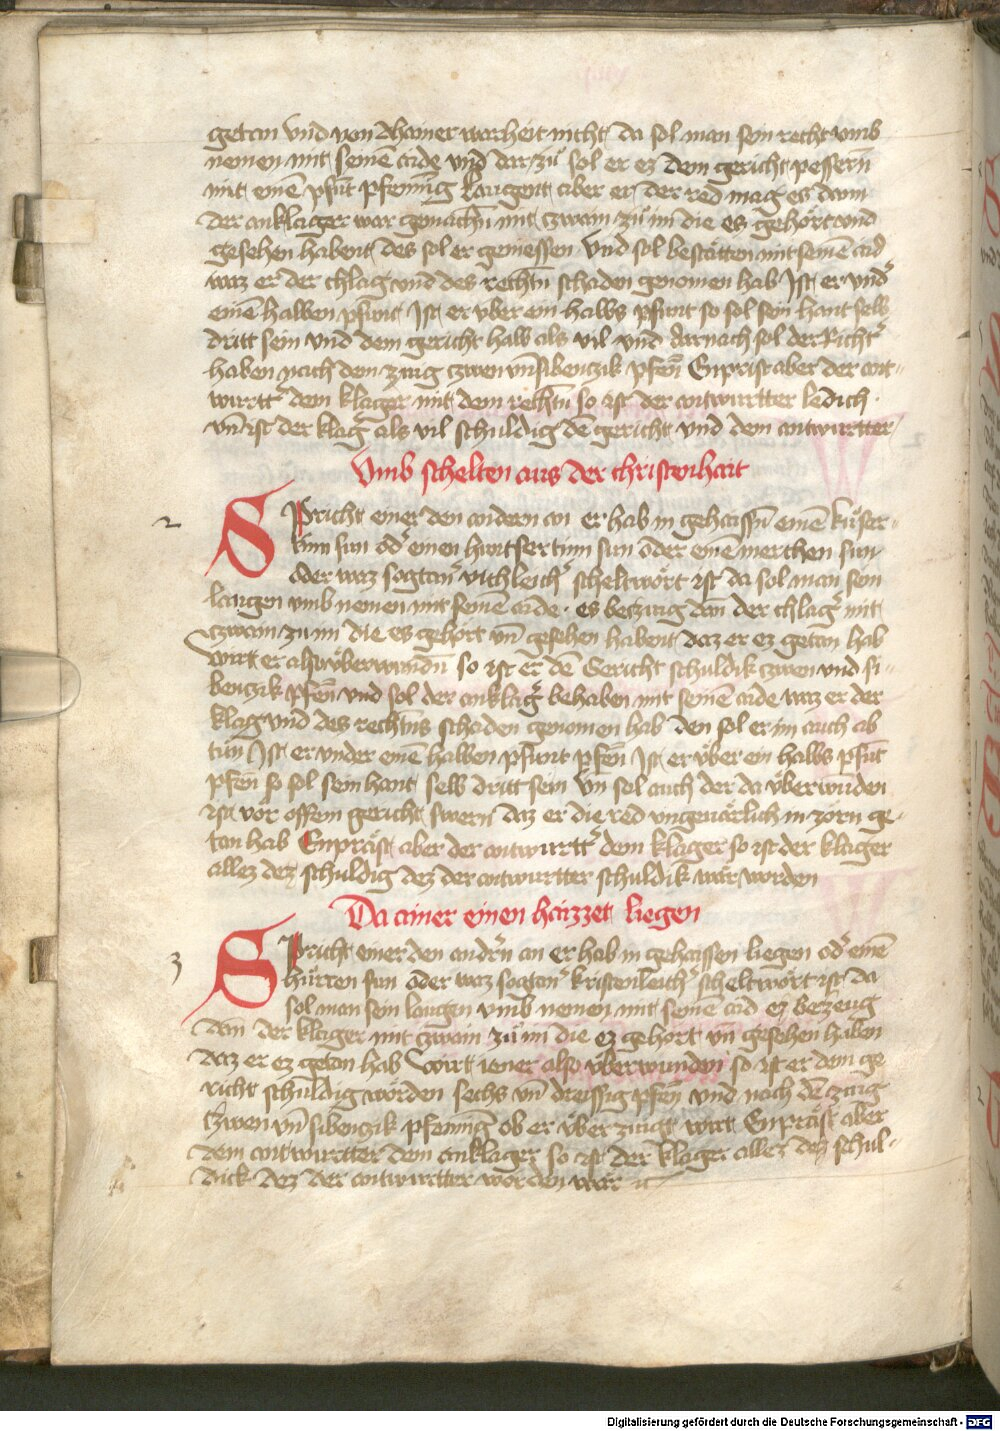 getan vnd von ainer warheit nicht da sol man sein recht vmb
nemen mit seinē aide vnd dar zů sol er ez dem gericht pessern̄
mit einē pfūt pfenning laugent aber er der red mag es dann
der anklager war gemachn̄ mit zwain zů im die es gehört vnd
gesehen habent des sol er geniessen vnd sol bestätten mit seinē aid
waz er der chlag vnd des rechtn̄ schaden genomen hab Ist er vnder
einē halben pfunt Ist er vber ein halbs pfunt so sol sein hant selb
dritt sein vnd dem gericht halb als vil vnd darnach sol der Richter
haben nach dem zwg czwen vn̄ sibenczik pfen̄ Enprist aber der ant-
wurtter dem klager mit dem rechtn̄ so ist der antwurtter ledich
vn̄ ist der klager als vil schuldig dē gericht vnd dem antwurtter
Vmb schelten aus der christenhait
2 SPricht einer den andern an er hab in gehaissn̄ einē
sun od' einen huntsertinn sun oder einē merchen sun
oder waz sogtaner vichleicher scheltwort ist da sol man sein
laugen vmb nemen mit seinē aide es beczwg dan̄ der chlager mit
czwain zu im die es gehört vn̄ gesehen habent daz er ez getan hab
wirt er also vberwundn̄ so ist er dē Gericht schuldik zwen vnd si-
benczik pfen̄ vnd sol der anklager behaben mit seinē aide waz er der
klag vnd des rechtns schaden genomen hab den sol er im auch ab
tůn Ist er vnder einē halben pfunt pfen̄ Ist er vber ein halbs pfūt
pfen̄ so sol sein hant selb dritt sein Vn̄ sol auch der da vberwūden
ist vor offem gericht swern daz er die red vngeuärlich in zorn ge-
tan hab Enpräst aber der antwurtter dem klager so ist der klager
allez dez schuldig dez der antwurtter schuldik wär worden
Da ainer einen haizzet liegen
3 SPricht einer den andr̄n an er hab in gehaissen liegen od' einē
hůrren sun oder waz sogtaner kristenleicher scheltwort ist da
sol man sein laugen vmb nemen mit seinē aid ez bezeug
dan̄ der klager mit zwain zů im die ez gehort vn̄ gesehen haben
daz er ez getan hab wirt iener also vberwunden so ist er dem ge
richt schuldig wörden sechs vn̄ dreissig pfen̄ vnd nach dē zwg
zwen vn̄ sibenczik pfenning ob er vberzwgt wirt Enpräst aber
dem antwurtter dem anklager so ist der klager allez dez schul-
dick dez der antwurtter worden wär
Digitalisierung gefördert durch die Deutsche Forschungsgemeinschaft - DFG